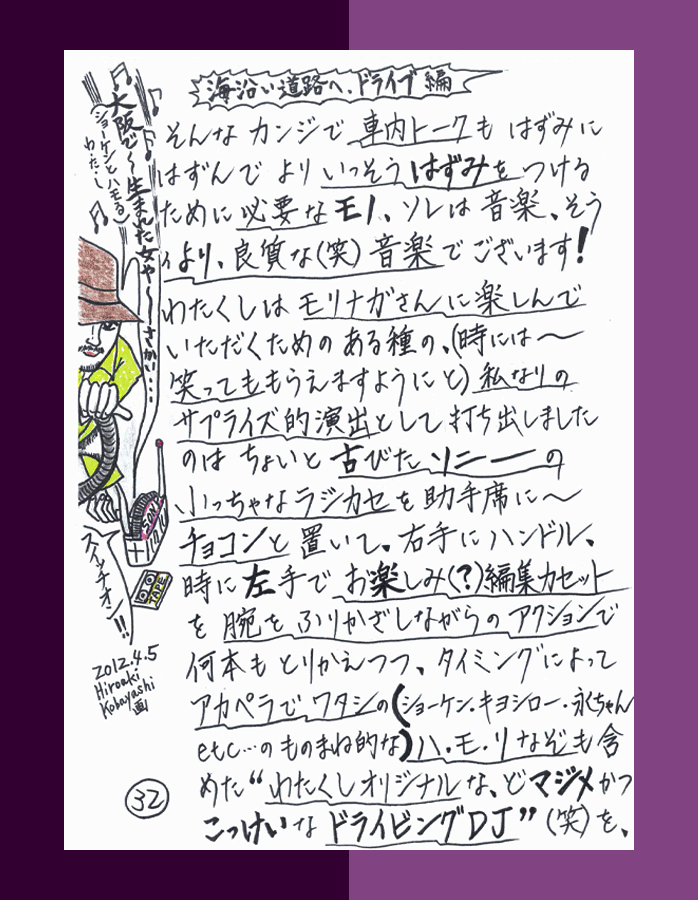 海沿い道路へ、ドライブ編
そんな カンジで 車内トークも はずみに
はずんで より いっそう はずみを つける
ために 必要なモノ、ソレは 音楽、そう
より、良質な(笑) 音楽で ございます!
わたくしは モリナガさんに 楽しんで
いただくための ある種の、(時には〜
笑ってももらえますようにと) 私なりの
サプライズ的演出として 打ち出しました
のは ちょいと 古びた ソニーの
小っちゃなラジカセを 助手席に〜
チョコンと 置いて、右手に ハンドル、
時に 左手で お楽しみ(?)編集カセット
を 腕を ふりかざしながらの アクションで
何本も とりかえつつ、タイミングによって
アカペラで ワタシの(ショーケン・キヨシロー・永ちゃん
etc…の ものまね的な)ハ・モ・リ なぞも 含
めた “わたくしオリジナルな、どマジメかつ
こっけいな ドライビングDJ” (笑) を、
大阪で〜生まれた女や〜〜さかい…
(ショーケンとハモる)
わ・た・し
SONY
TAPE
スイッチオン!!
2012.4.5
Hiroaki
Kobayashi
画
32